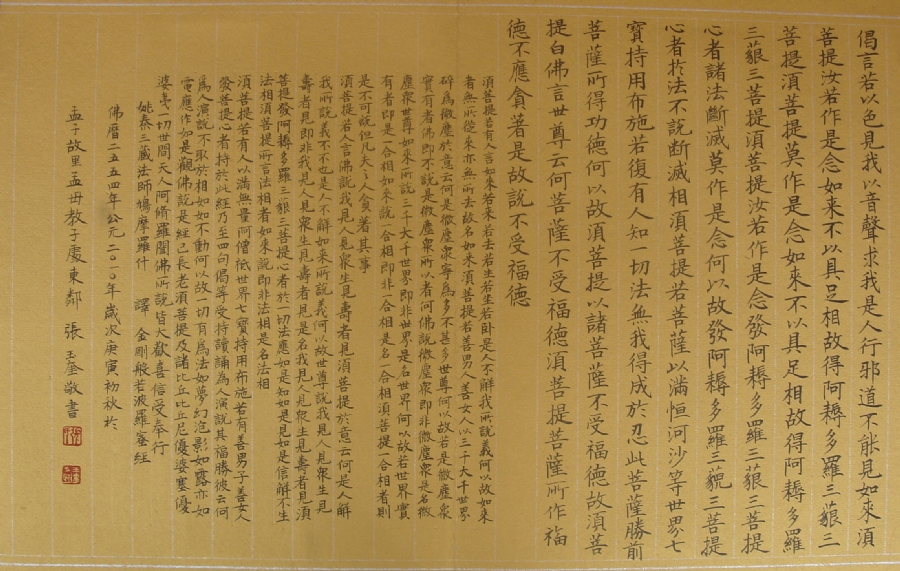 偈言若以色見我以音聲求我是人行邪道不能見如來須
菩提汝若作是念如來不以具足相故得阿耨多羅三藐三
菩提須菩提莫作是念如來不以具足相故得阿耨多羅
三藐三菩提須菩提汝若作是念發阿耨多羅三藐三菩提
心者諸法斷滅莫作是念何以故發阿耨多羅三藐三菩提
心者於法不說斷滅相須菩提若菩薩以滿恒河沙等世界七
寶持用布施若復有人知一切法無我得成於忍此菩薩勝前
菩薩所得功德何以故須菩提以諸菩薩不受福德故須菩
提白佛言世尊云何菩薩不受福德須菩提菩薩所作福
德不應貪著是故說不受福德
須菩提若有人言如來若來若去若坐若臥是人不解我所說義何以故如來
者無所從來亦無所去故名如來須菩提若善男人善女人以三千大千世界
碎為微塵於意云何是微塵衆寧為多不甚多世尊何以故若是微塵衆
實有者佛即不說是微塵衆所以者何佛說微塵衆即非微塵衆是名微
塵衆世尊如來所說三千大千世界即非世界是名世界何以故若世界實
有者即是一合相如來說一合相即非一合相是名一合相須菩提一合相者則
是不可說但凡夫之人貪著其事
須菩提若人言佛說我見人見衆生見壽者見須菩提於意云何是人解
我所說義不不也是人不解如來所說義何以故世尊說我見人見衆生見
壽者見即非我見人見衆生見壽者見是名我見人見衆生見壽者見須
菩提發阿耨多羅三藐三菩提心者於一切法應如是知如是見如是信解不生
法相須菩提所言法相者如來說即非法相是名法相
須菩提若有人以滿無量阿僧低世界七寶持用布施若有善男子善女人
發菩提心者持於此經乃至四句偈等受持讀誦為人演說其福勝彼云何
為人演說不取於相如如不動何以故一切有為法如夢幻泡影如露亦如
電應作如是觀佛說是經已長老須菩提及諸比丘比丘尼優婆塞優
婆夷一切世間天人阿脩羅聞佛所說皆大歡喜信受奉行
姚秦三藏法師鳩摩羅什 譯 金剛般若波羅蜜經
佛曆二五五四年公元二〇一〇年歲次庚寅初秋於
孟子故里孟母教子處東鄰 張玉奎敬書